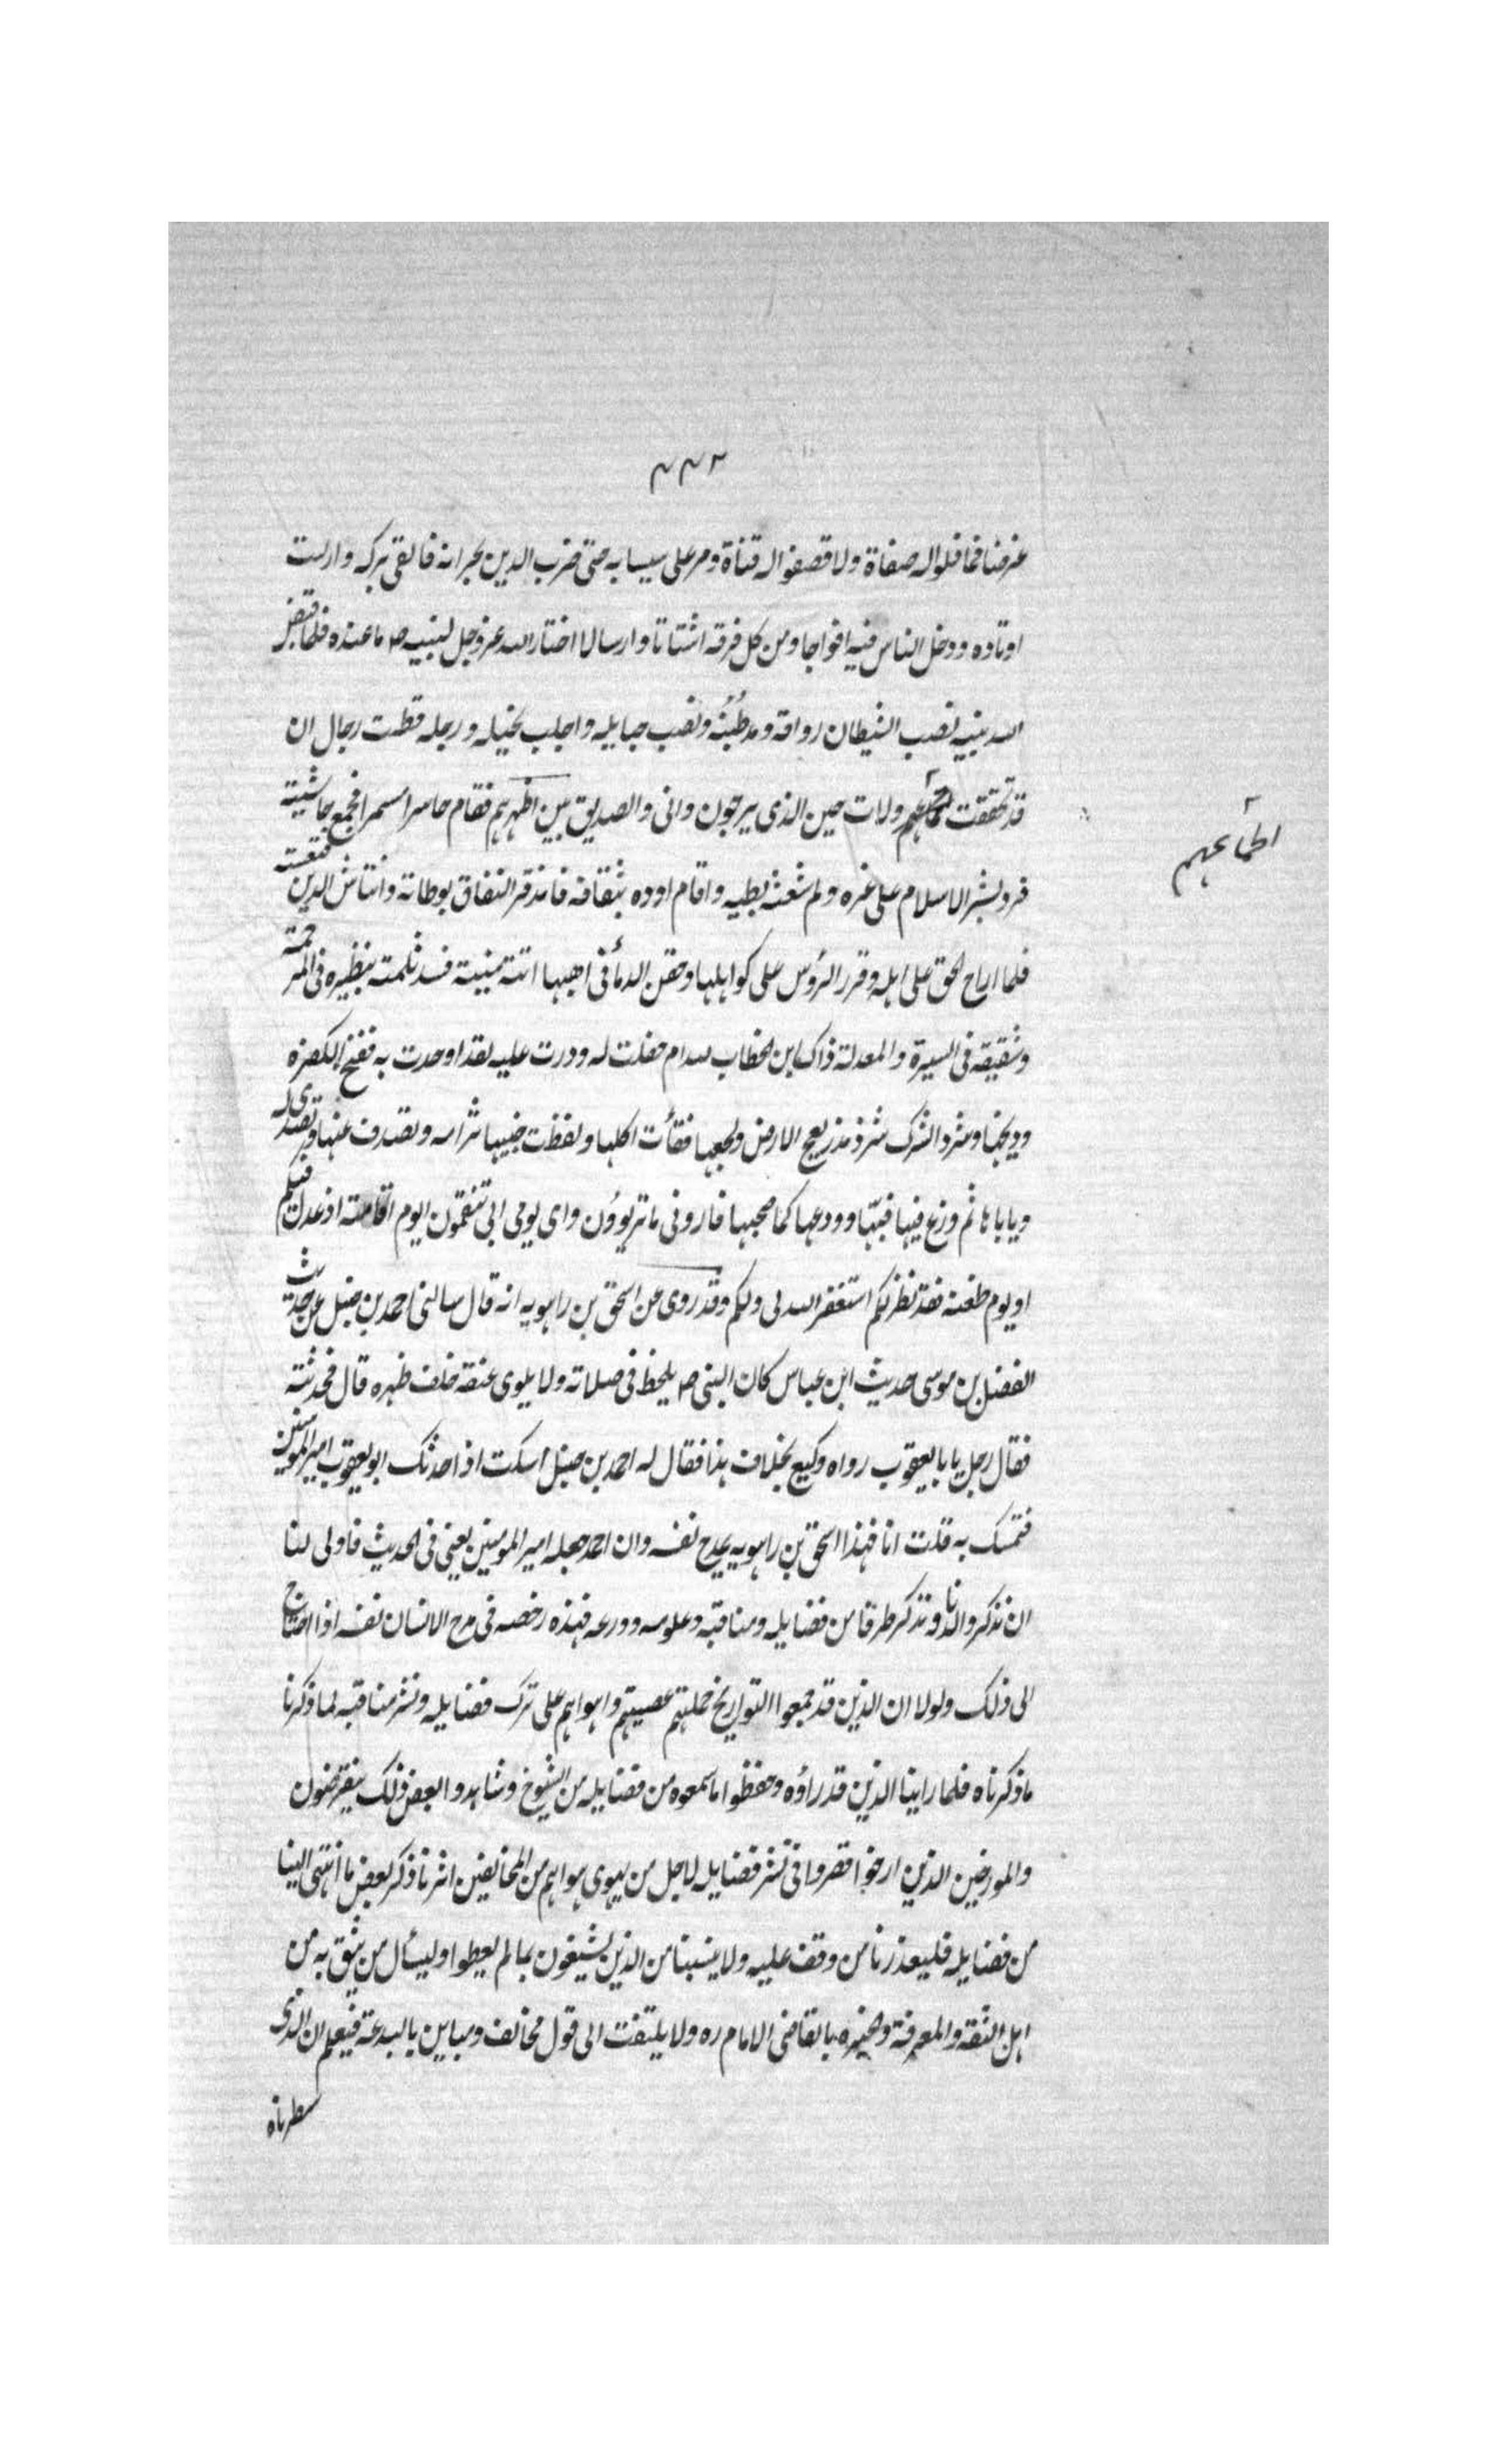 ٢٣٣
عرضنا فما فلوا له صفاة ولا قصفوا له قناة ومر على سيسايه حتى ضرب الدين بجرانه فالقى بركه وارست
اوتاده ودخل الناس فيه افواجا ومن كل فرقه اشتاتا وارسالا اختار الله عزوجل لنبيه ص ما عنده فلما قبض
الله نبيه نصب الشيطان رواقه ومد طُنُبَهُ ونصب حبايله واجلب بخيله ورجله فظنت رجال ان
قد تحققت ولات حين الذى يرجون وانى والصديق بين اظهرهم فقام حاسرا مسمرا فجمع حاشيته
اطماعهم
فرد بشر الاسلام على غره ولم شعثه بطيه واقام اوده بثقافه فانذقر النفاق بوطاته وانتاش الدين فنعشه
فلما اراح الحق على اهله وقرر الرؤس على كواهلها وحقن الدمأ فى اهبها اتته منيته فسد ثلمته بنظيره فى المرحمة
وشقيقه فى السيرة والمعدلة ذاك ابن الخطاب لله ام حفلت له ودرت عليه لقد اوحدت به ففنخ الكفره
وديخها وشرد الشرك شرذ مذر بعج الارض وبخعها فقأت اكلها ولفظت خبيها ترامه وتصدف عنها وتصدى له
وياباها ثم وزع فيها فيّها وودعها كما صحبها فارونى ما تريوون واى يومى ابى تنقمون ايوم اقامته اذ عدل فيكم
او يوم ظعنه فقد نظر لكم استغفر الله لى ولكم وقد روى عن اسحق بن راهويه انه قال سالنى احمد بن حنبل عن حديث
الفضل بن موسى حديث ابن عباس كان النبى ص يلحظ فى صلاته ولا يلوى عنقه خلف ظهره قال فحدثته
فقال رجل يابا يعقوب رواه وكيع بخلاف هذا فقال له احمد بن حنبل اسكت اذا حدثك ابو يعقوب امير المومنين
فتمسك به قلت انا فهذا اسحق بن راهويه يمدح نفسه وان احمد جعله امير المومنين يعنى فى الحديث فاولى لنا
ان نذكر والدنا ونذكر طرقا من فضايله ومناقبه وعلومه وورعه فهذه رخصه فى مدح الانسان نفسه اذا احتاج
الى ذلك ولولا ان الذين قد جمعوا التواريخ حملتهم عصبيتهم واهواهم على ترك فضايله ونشر مناقبه لما ذكرنا
ما ذكرناه فلما راينا الذين قد راؤه وحفظوا ما سمعوه من فضايله من الشيوخ وشاهدوا بعض ذلك ينقرضون
والمورخين الذين ارخوا قصروا فى نشر فضايله لاجل من يهوى هواهم من المخالفين اثرنا ذكر بعض ما انتهى الينا
من فضايله فليعذرنا من وقف عليه ولا ينسبنا من الذين يشبعون بما لم يعطوا وليسأل من يثق به من
اهل الثقة والمعرفة والخبره بالقاضى الامام ره ولا يلتفت الى قول مخالف ومباين بالبدعة فيعلم ان الذى
سطرناه